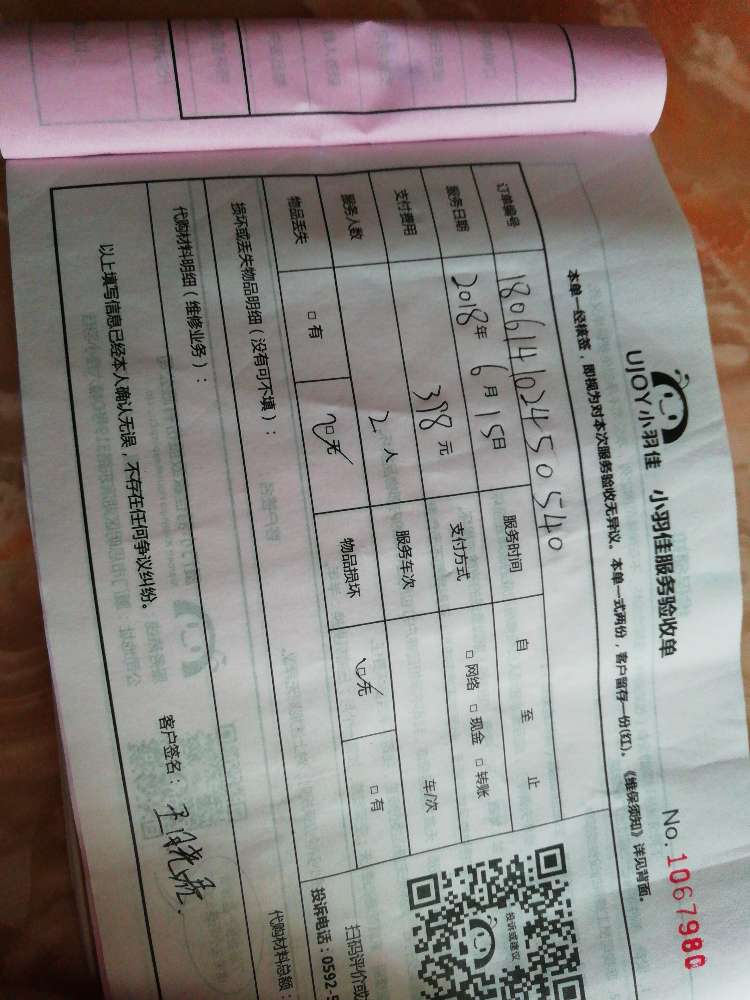 UJOY小羽佳 小羽佳服务验收单
No.1067980
本单一经接签，即视为对本次服务验收无异议。本单一式两份，客户留存一份(红)。《维保须知》详见背面。
订单编号 180614102450540
服务日期 2018年6月15日 服务时间 自 至 止
支付费用 398元 支付方式 □网络 □现金 □转账
服务人数 2人 服务车次 车/次
物品丢失 □有 ☑无 物品损坏 ☑无 □有
损坏或丢失物品明细（没有可不填）：
代购材料明细（维修业务）： 代购材料总额：
以上填写信息已经本人确认无误，不存在任何争议纠纷。 客户签名：
投诉或建议
扫码评价或
投诉电话：0592-5